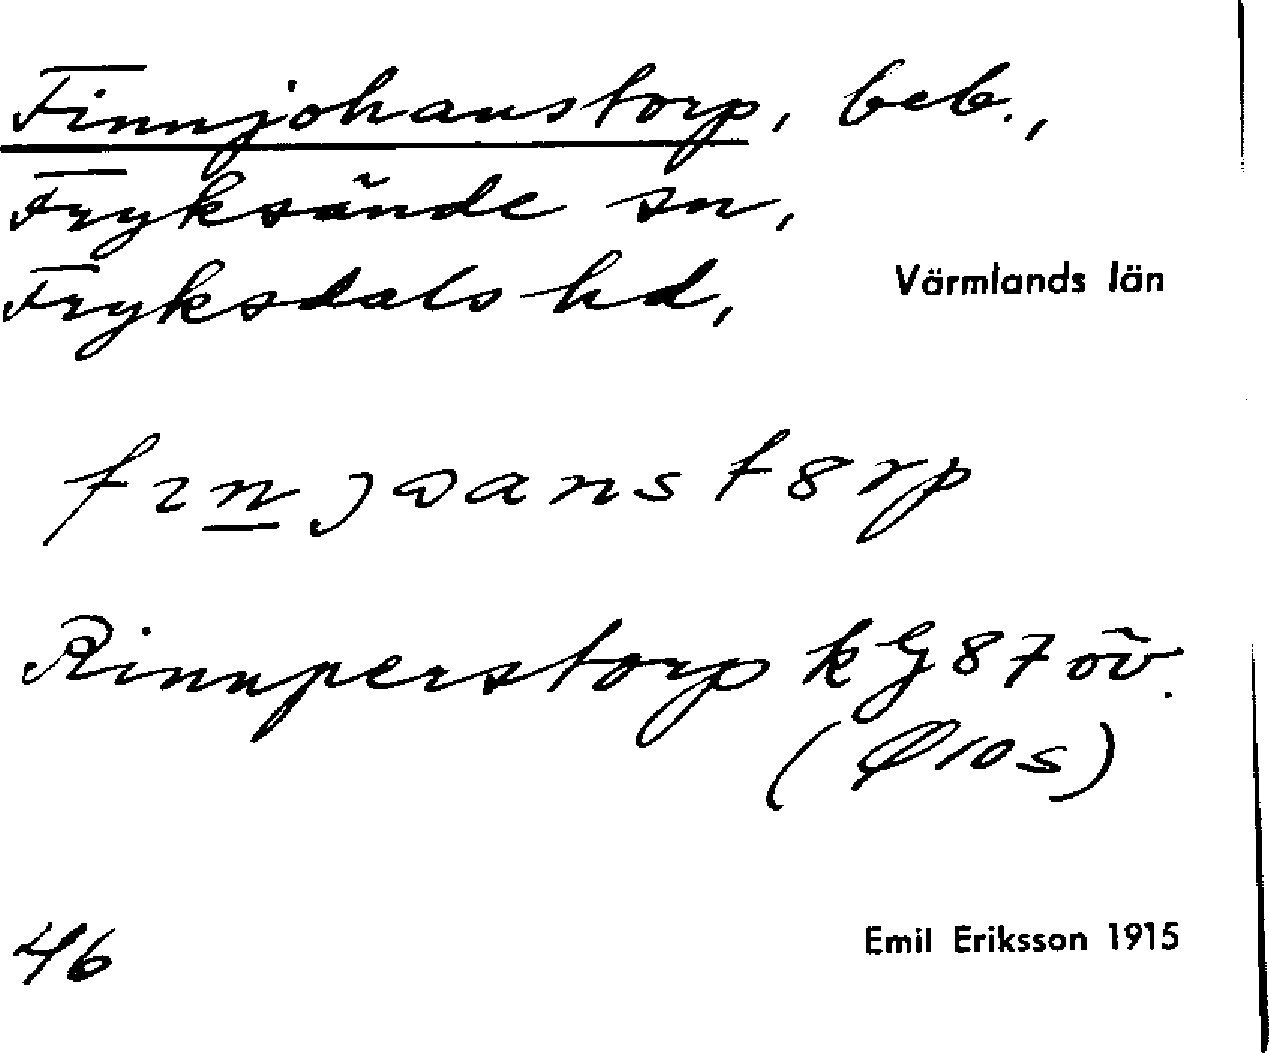 Finnjohanstorp, beb.,
Fryksände sn,
Fryksdals hd, Värmlands län
Rinnperstorp kG87öv.
(Ø10s)
46 Emil Eriksson 1915